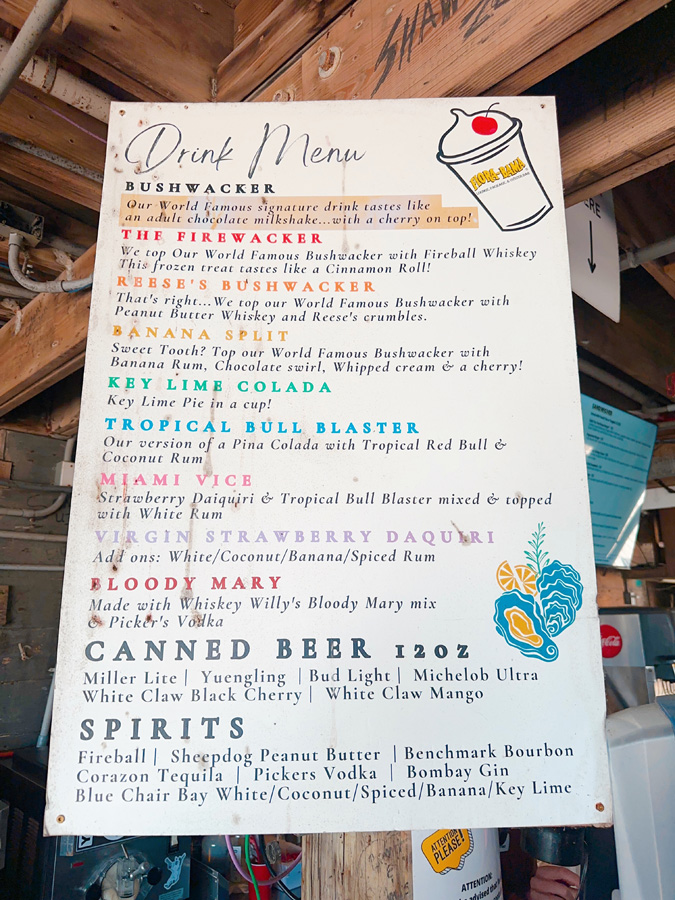 SHAW
Drink Menu
FLORA-BAMA
BUSHWACKER
Our World Famous signature drink tastes like
an adult chocolate milkshake...with a cherry on top!
THE FIREWACKER
We top Our World Famous Bushwacker with Fireball Whiskey
This frozen treat tastes like a Cinnamon Roll!
REESE'S BUSHWACKER
That's right...We top our World Famous Bushwacker with
Peanut Butter Whiskey and Reese's crumbles.
BANANA SPLIT
Sweet Tooth? Top our World Famous Bushwacker with
Banana Rum, Chocolate swirl, Whipped cream & a cherry!
KEY LIME COLADA
Key Lime Pie in a cup!
TROPICAL BULL BLASTER
Our version of a Pina Colada with Tropical Red Bull &
Coconut Rum
MIAMI VICE
Strawberry Daiquiri & Tropical Bull Blaster mixed & topped
with White Rum
VIRGIN STRAWBERRY DAQUIRI
Add ons: White/Coconut/Banana/Spiced Rum
BLOODY MARY
Made with Whiskey Willy's Bloody Mary mix
& Picker's Vodka
CANNED BEER 12OZ
Miller Lite | Yuengling | Bud Light | Michelob Ultra
White Claw Black Cherry | White Claw Mango
SPIRITS
Fireball | Sheepdog Peanut Butter | Benchmark Bourbon
Corazon Tequila | Pickers Vodka | Bombay Gin
Blue Chair Bay White/Coconut/Spiced/Banana/Key Lime
Coca-Cola
ATTENTION
PLEASE!
ATTENTION:
advised that